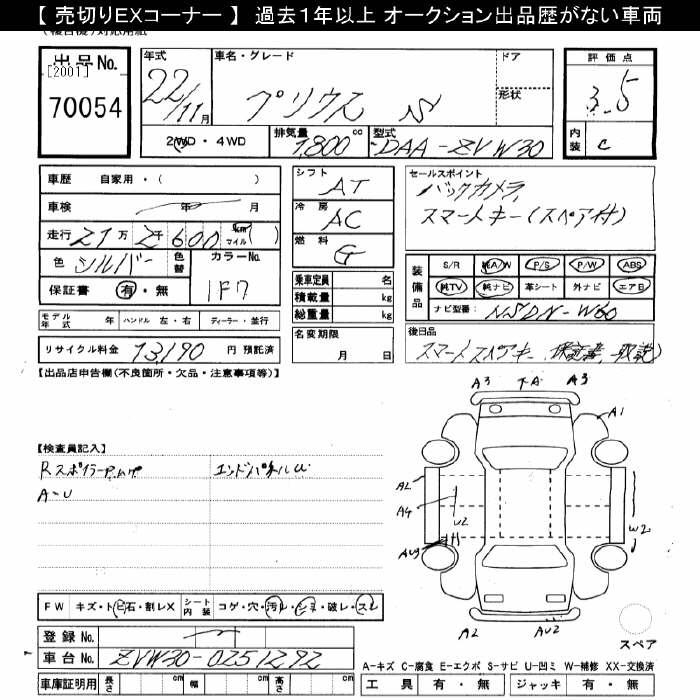 【 売切りEXコーナー 】 過去1年以上 オークション出品歴がない車両
出品No.
[2001]
70054
年式 22/11月
車名・グレード プリウス S
ドア
形状
評価点 3.5
内装 C
2WD・4WD
排気量 1,800 cc
型式 DAA-ZVW30
車歴 自家用・( )
車検 年 月
走行 21万 2千 600 km マイル )
色 シルバー 色替
カラーNo. 1F7
保証書 有・無
シフト AT
冷房 AC
燃料 G
乗車定員 名
積載量 kg
総重量 kg
セールスポイント
バックカメラ
スマートキー(スペア付)
装備品 S/R 純A/W P/S P/W ABS
純TV 純ナビ 革シート 外ナビ エアB
ナビ型番: NSDN-W60
モデル年式 年 ハンドル 左・右 ディーラー・並行
リサイクル料金 13,190 円 預託済
名変期限
月 日
後日品
スマートスペアキー、保証書、取説)
【出品店申告欄(不良箇所・欠品・注意事項等)】
A3 A3
A1
【検査員記入】
Rスポイラー エンドパネルU
A-U
A2
A4
U2
W2
A2 AU2
FW キズ・トビ石・割レX シート内装 コゲ・穴・汚レ・シミ・破レ・スレ
登録No.
車台No. ZVW30-0251292
スペア
A-キズ C-腐食 E-エクボ S-サビ U-凹ミ W-補修 XX-交換済
車庫証明用 長さ cm 幅 cm 高さ cm
工具 有・無 ジャッキ 有・無